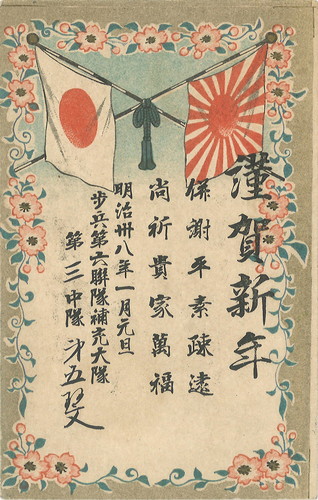 謹賀新年
併謝平素疎遠
尚祈貴家萬福
明治卅八年一月元旦
歩兵第六聯隊補充大隊
第三中隊 才五班